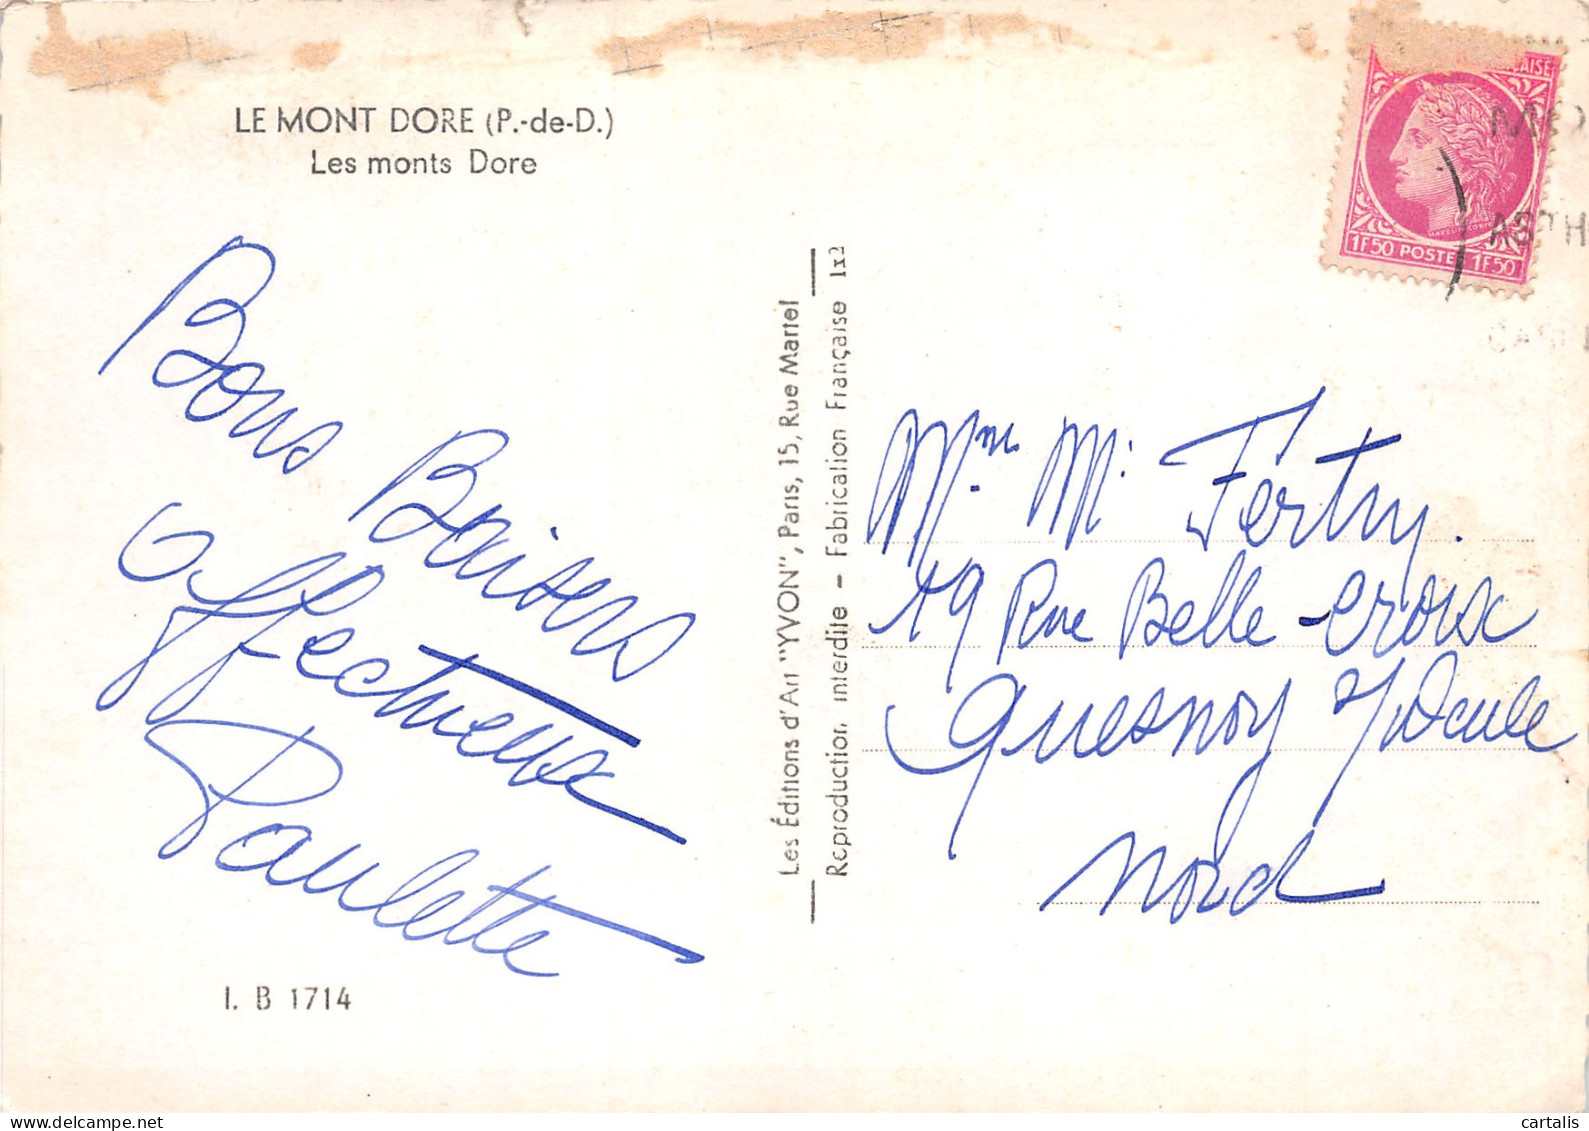 LE MONT DORE (P.-de-D.)
Les monts Dore
Bons Baisers
Affectueux
Paulette
I. B 1714
Les Éditions d'Art "YVON", Paris, 15, Rue Martel
Reproduction interdite - Fabrication Française 1x2
AISE
1F50 POSTE 1F50
MO
ASTH
Mme M. Fertry.
19 Rue Belle-Croix
Quesnoy s/ Deule
Nord
cartalis
delcampe.net